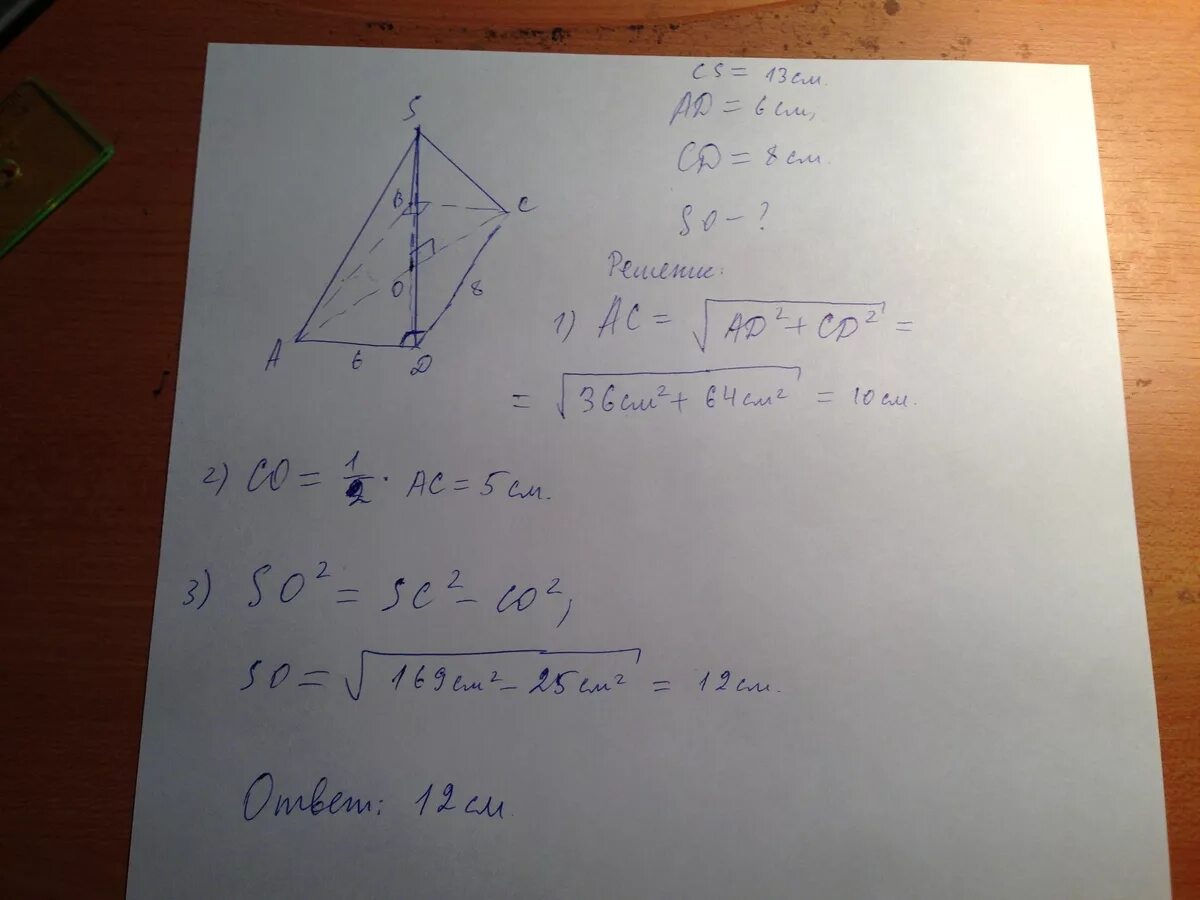 CS = 13 см.
AD = 6 см,
CD = 8 см.
SO - ?
S
B
C
O
8
A
6
D
Решение:
1) AC = √AD² + CD² =
= √36см² + 64см² = 10 см.
2) CO = 1/2 · AC = 5 см.
3) SO² = SC² - CO²,
SO = √169см² - 25см² = 12 см.
Ответ: 12 см.